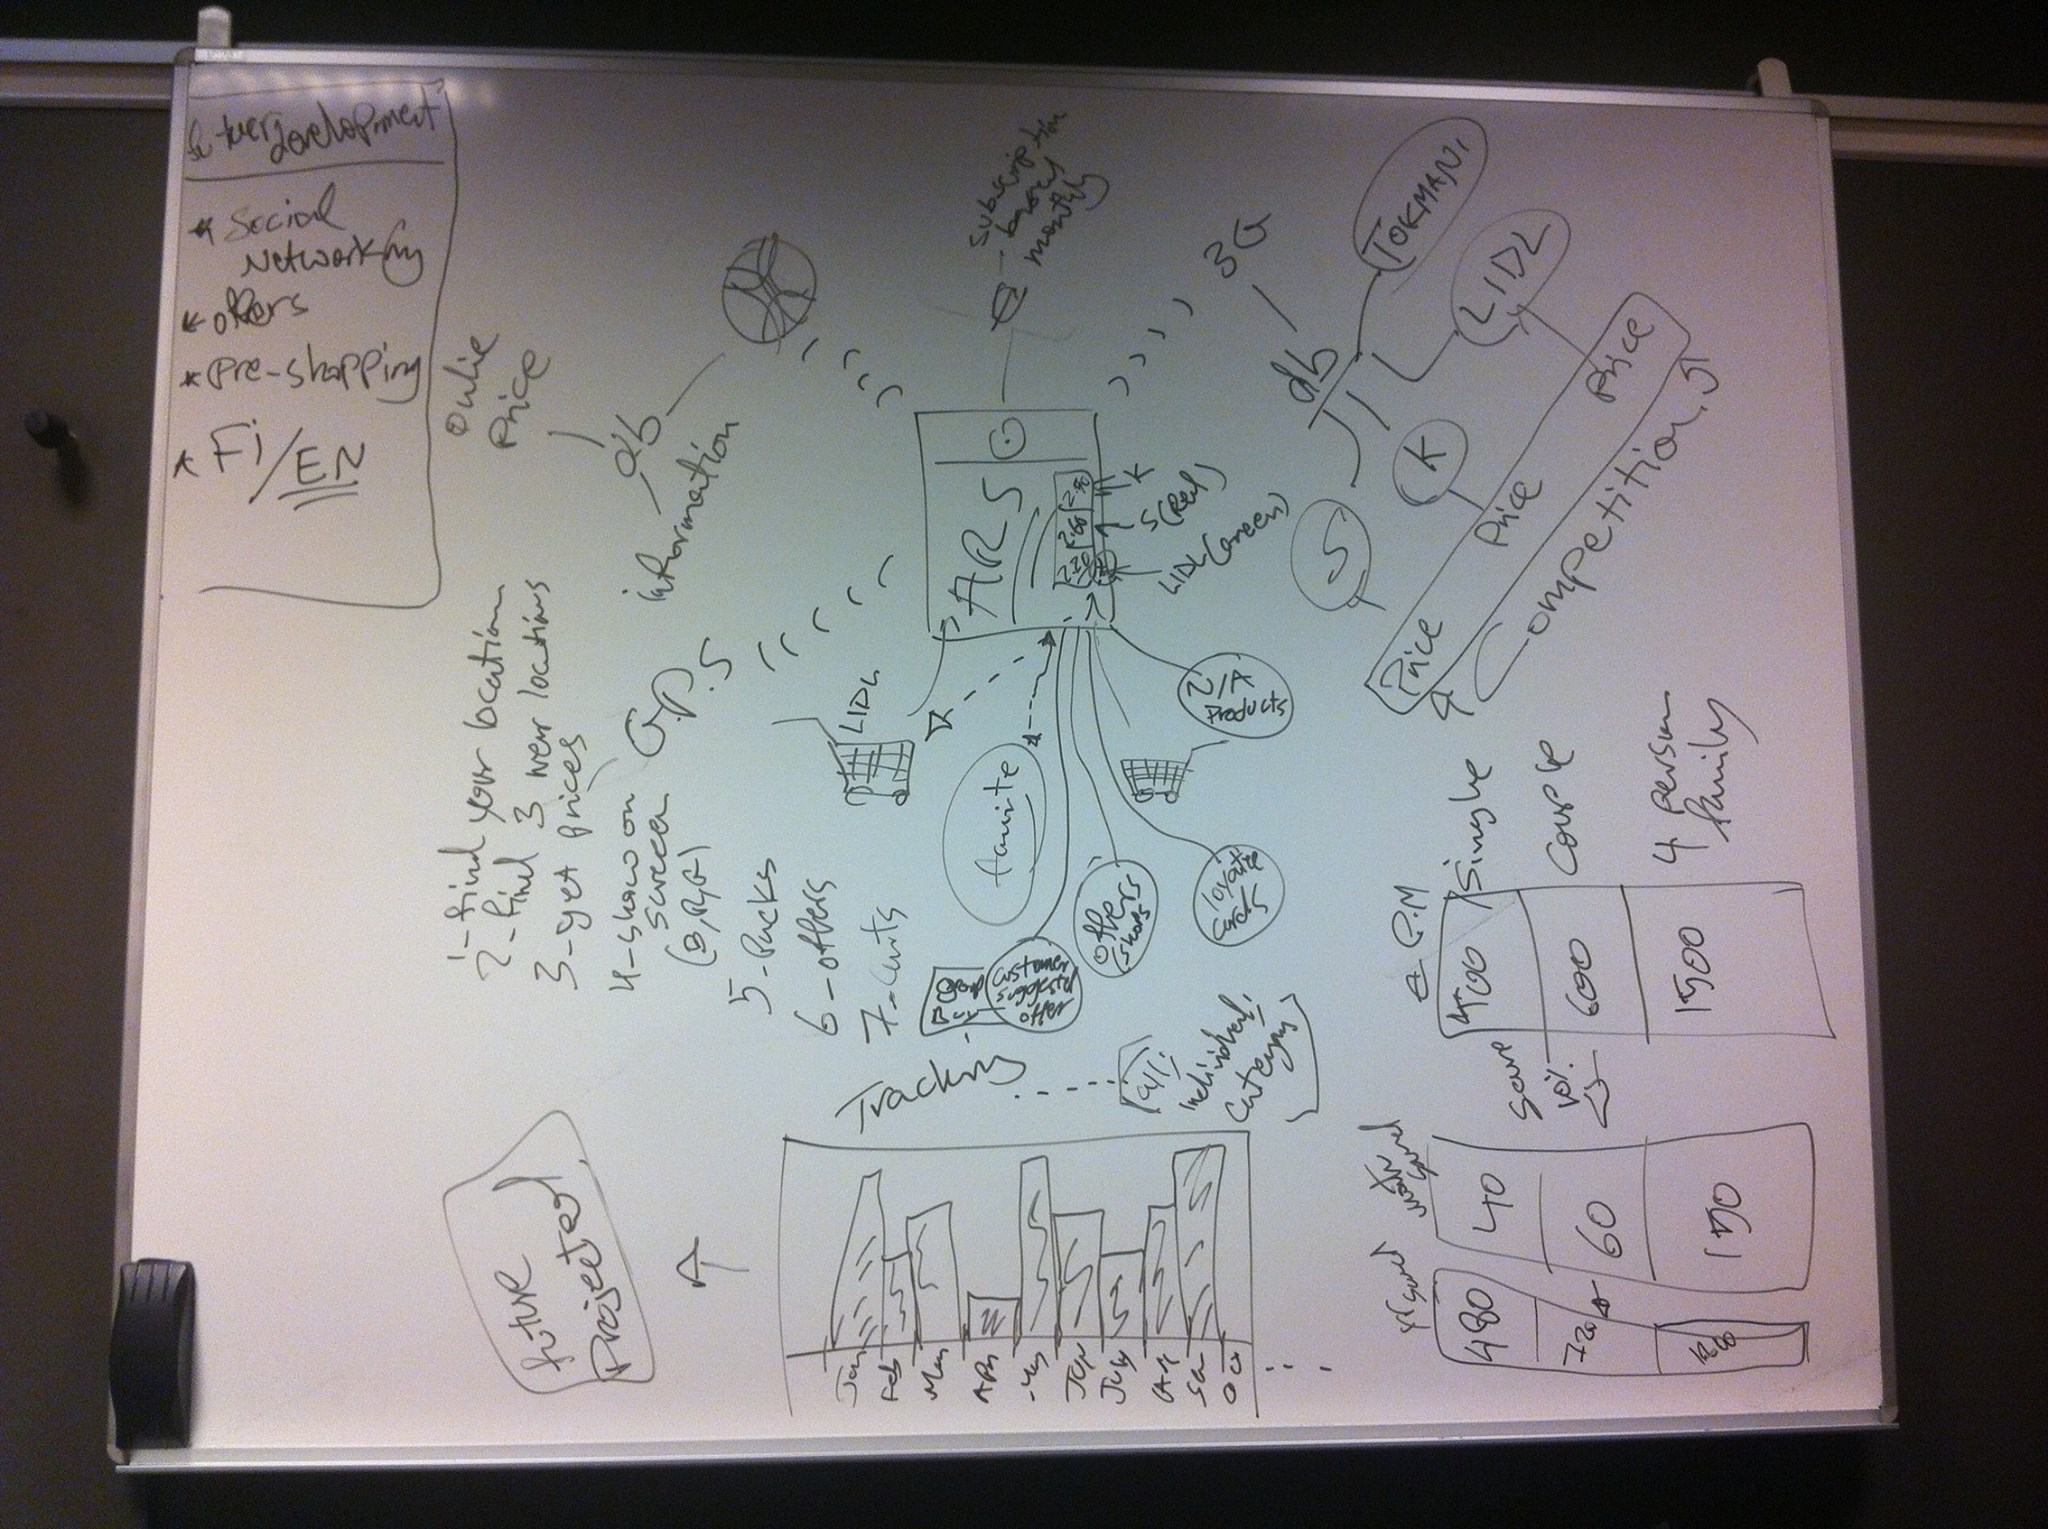 development
* Social
Networking
* offers
* pre-shopping
* Fi/EN
Online
Price
db
information
subscription
monthly
3G
db
TOKMANI
LIDL
K
S
Price
Price
Price
Competition
ARS
2.20
K
S (Red)
LIDL (Green)
G.P.S
1- find your location
2- find 3 near locations
3- get prices
4- show on
screen
5- Packs
6- offers
7- Carts
LIDL
Products
offers
shops
cards
customer
suggested
offer
Tracking
All
individual
Category
future
Projected
Jan
Feb
Mar
Apr
Jun
July
P.M
400
Single
600
Couple
1500
4 person
family
save
10%
saved
40
60
150
480
720